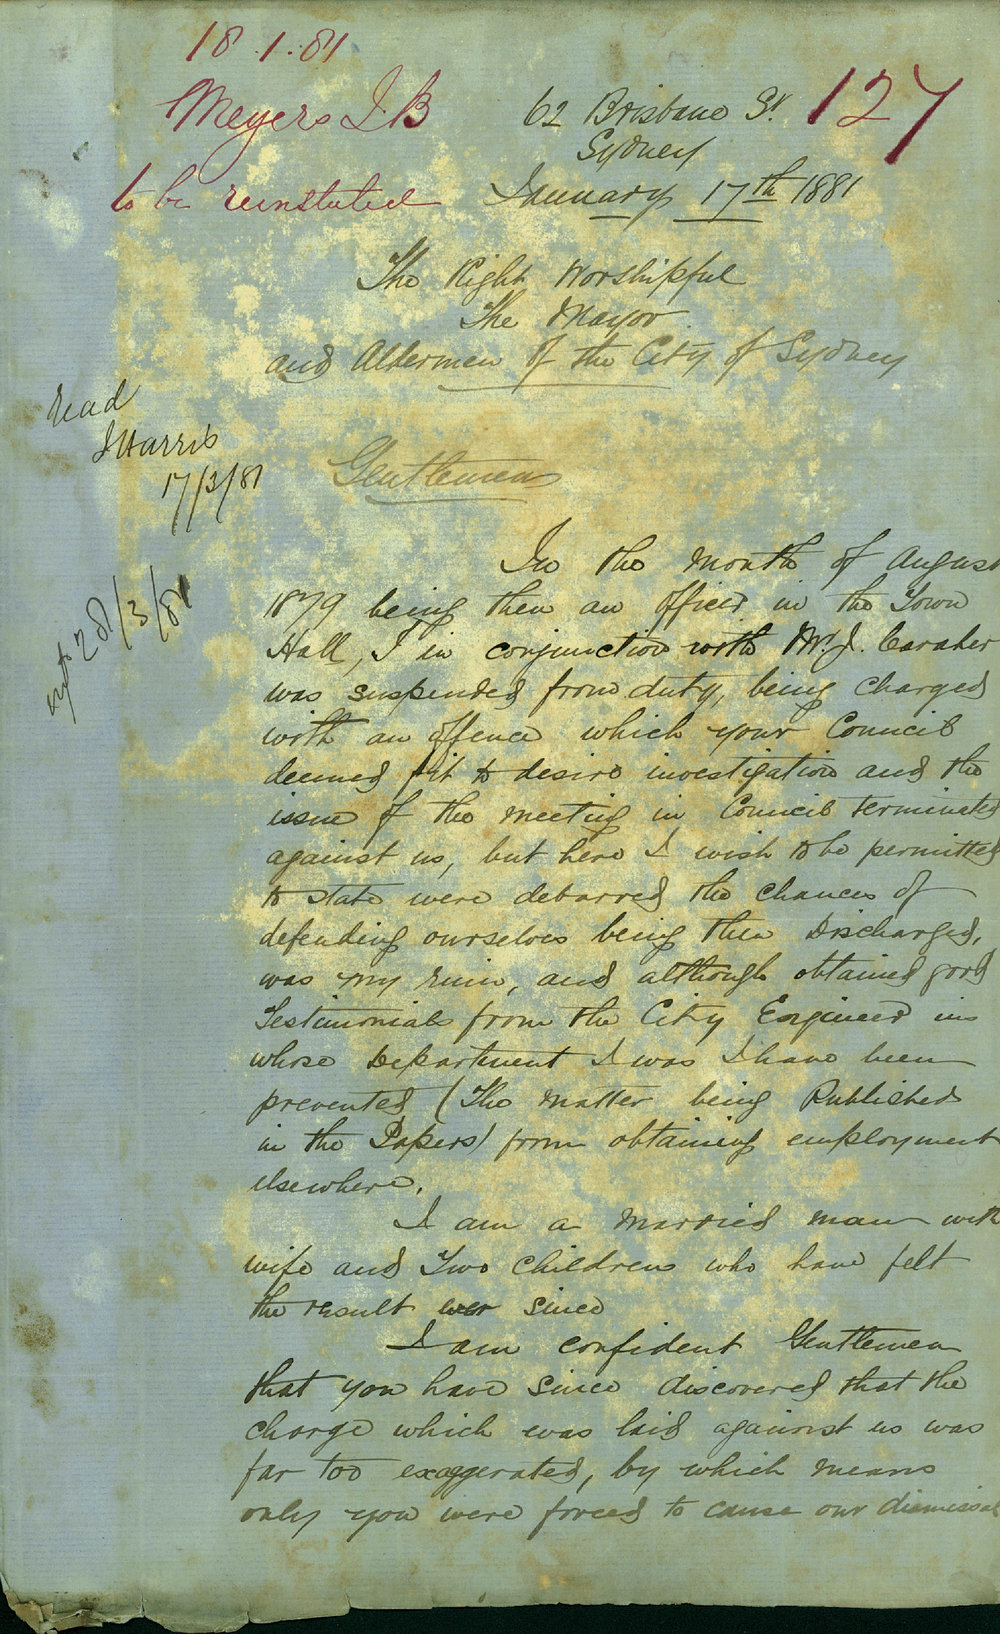 18.1.81
Meyers J.B
to be reinstated
127
62 Brisbane St.
Sydney
January 17th 1881
The Right Worshipful
The Mayor
and Aldermen of the City of Sydney
read
J Harris
17/3/81
28/3/81
Gentlemen
In the month of August
1879 being then an officer in the Town
Hall, I in conjunction with Mr. J. Caraher
was suspended from duty, being charged
with an offence which your Council
deemed fit to desire investigation and the
issue of the meeting in Council terminated
against us, but here I wish to be permitted
to state were debarred the chances of
defending ourselves being then Discharged,
was my ruin, and although obtained good
Testimonials from the City Engineer in
whose Department I was I have been
prevented (The matter being Published
in the Papers) from obtaining employment
elsewhere.
I am a married man with
wife and Two children who have felt
the result ever since
I am confident Gentlemen
that you have since discovered that the
charge which was laid against us was
far too exaggerated, by which means
only you were forced to cause our dismissal